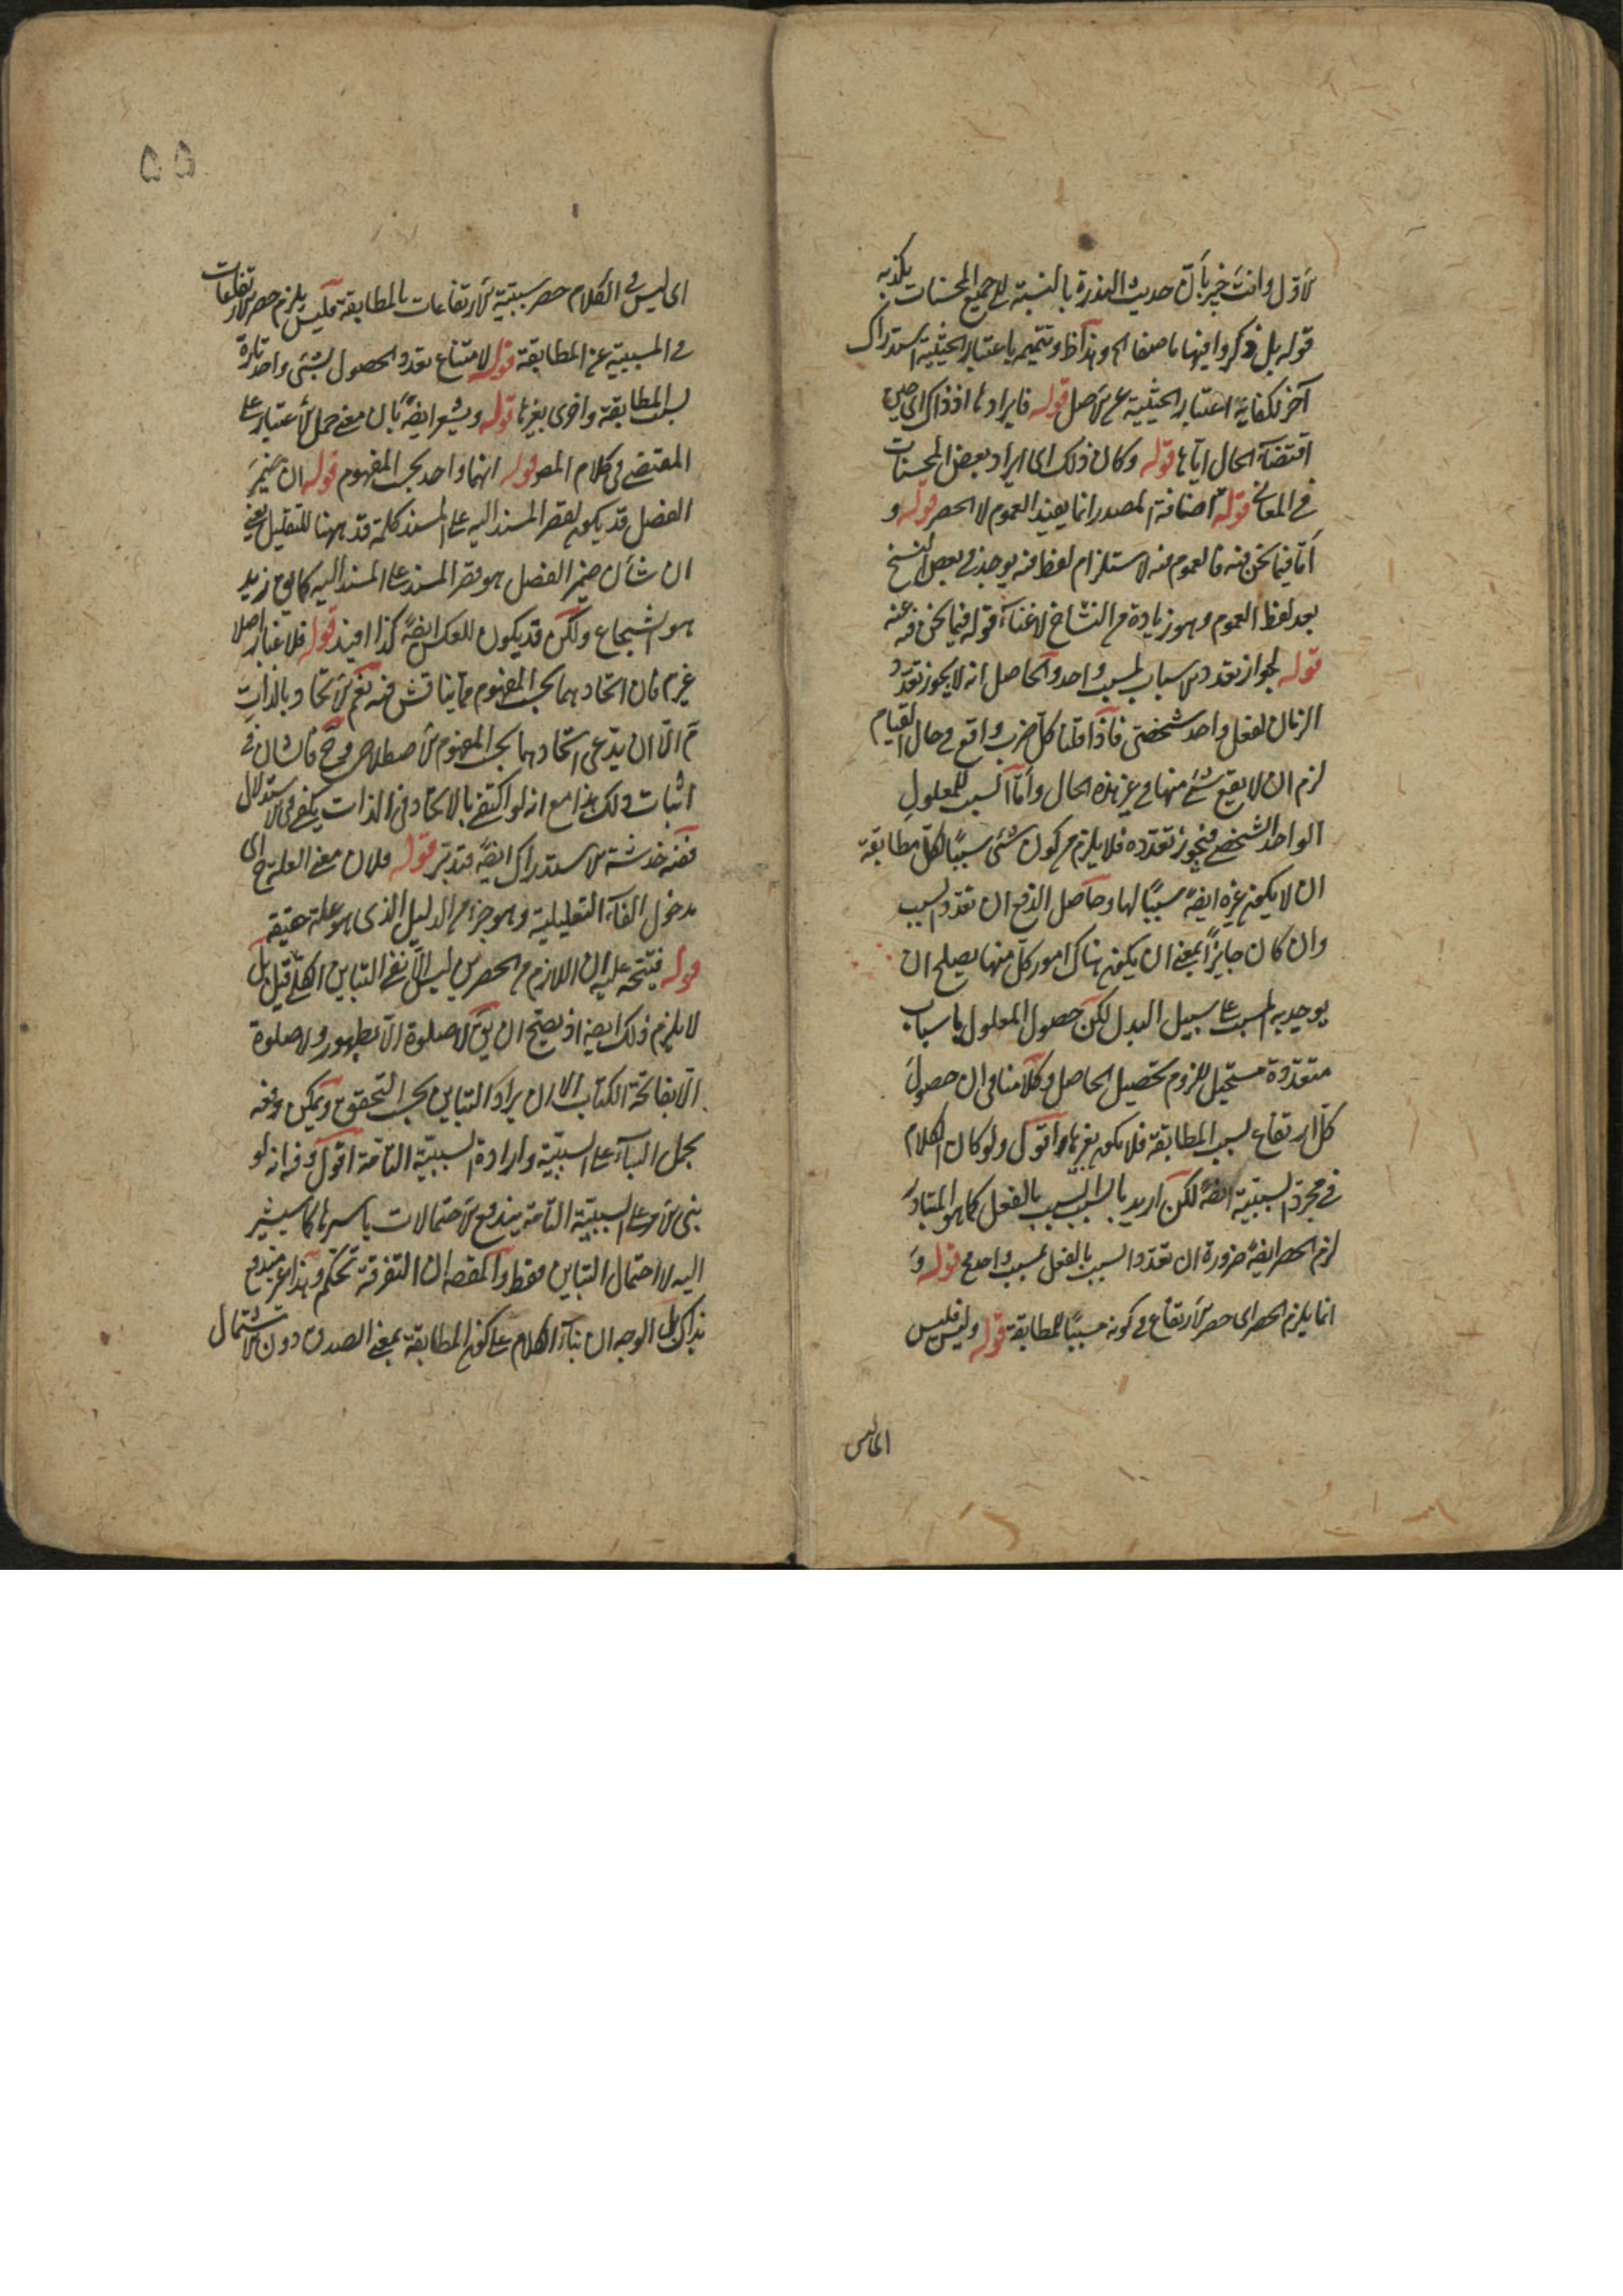 لأول وانت خبير بأن حديث الندرة بالنسبة الى جميع المحسنات يكذبه
قوله بل ذكروا فيهما ما صنفا الخ وهذا ظ وتتميمه باعتبار الحيثية استدراك
آخر لكفاية اعتبار الحيثية على الأصل قوله فايرادها اذ ذاك اى حين
اقتضاء الحال اياها قوله وكان ذلك اى ايراد بعض المحسنات
فى المعانى قوله اضافة المصدر انما يفيد العموم لا الحصر قوله و
أما فيما نحن فيه فالعموم فيه لاستلزام لفظ فيه يوجد فى بعض النسخ
بعد لفظ العموم وهو زيادة من النساخ لاغناء قوله فيما نحن فيه عنه
قوله لجواز تعدد الاسباب لمسبب واحد والحاصل انه لا يجوز تعدد
الزمان لفعل واحد شخصى فاذا قلنا كل ضرب واقع فى حال القيام
لزم ان لا يقع شئ منها فى غير هذه الحال وأما السبب للمعلول
الواحد الشخصى فيجوز تعدده فلا يلزم من كون شئ سببًا لكل مطابقة
ان لا يكون غيره ايضًا سببًا لها وحاصل الدفع ان تعدد السبب
وان كان جايزًا بمعنى ان يكون هناك امور كل منها يصلح ان
يوجد به المسبب على سبيل البدل لكن حصول المعلول باسباب
متعددة مستحيل للزوم تحصيل الحاصل وكلامنا فى ان حصول
كل ارتفاع بسبب المطابقة فلا يكون بغيرها واقول ولو كان الكلام
فى مجرد السببية ايضًا لكن اريد بالسبب السبب بالفعل كما هو المتبادر
لزم الحصر ايضًا ضرورة ان تعدد السبب بالفعل لمسبب واحد مح قوله و
انما يلزم الحصر اى حصر الارتفاع فى كونه مسببًا للمطابقة قوله وليس فليس
اى ليس
٥٥
اى ليس فى الكلام حصر سببية الارتفاعات بالمطابقة فليس يلزم حصر الارتفاعات
فى المسببية عن المطابقة قوله لامتناع تعدد الحصول لشئ واحد تارة
بسبب المطابقة واخرى بغيرها قوله ويشعر ايضًا بان معنى حمل الاعتبار على
المقتضى فى كلام المص قوله انهما واحد بحسب المفهوم قوله ان ضمير
الفصل قد يكون لقصر المسند اليه على المسند كلمة قد ههنا للتقليل يعنى
ان شأن ضمير الفصل هو قصر المسند على المسند اليه كما فى زيد
هو الشجاع ولكن قد يكون للعكس ايضًا كذا افيد قوله فلا غبار اصلا
غيرم فان اتحادهما بحسب المفهوم مما يناقش فيه نعم الاتحاد بالذات
م الا ان يدعى اتحادهما بحسب المفهوم الاصطلاحى وح فالشان فى
اثبات ذلك هذا مع انه لو اكتفى بالاتحاد فى الذات يكفى فى الاستدلال
ففيه خدشة الاستدراك ايضًا فتدبر قوله فلان معنى العلة ح اى
مدخول الفاء التعليلية وهو جزء من الدليل الذى هو علة حقيقة
قوله فيتجه عليه ان اللازم من الحصرين ليس الا نفى التباين الكلى قيل بل
لا يلزم ذلك ايضا اذ يصح ان يق لا صلوة الا بطهور ولا صلوة
الا بفاتحة الكتاب الا ان يراد التباين بحسب التحقق ويمكن دفعه
بحمل الباء على السببية وارادة السببية التامة اقول وفيه انه لو
بنى الامر على السببية التامة يندفع الاحتمالات باسرها كما سيشير
اليه لا احتمال التباين فقط والمقصه ان التفرقة تحكم وهذا غير مندفع
بذاك بل الوجه ان بناء الكلام على كون المطابقة بمعنى الصدق دون الاشتمال